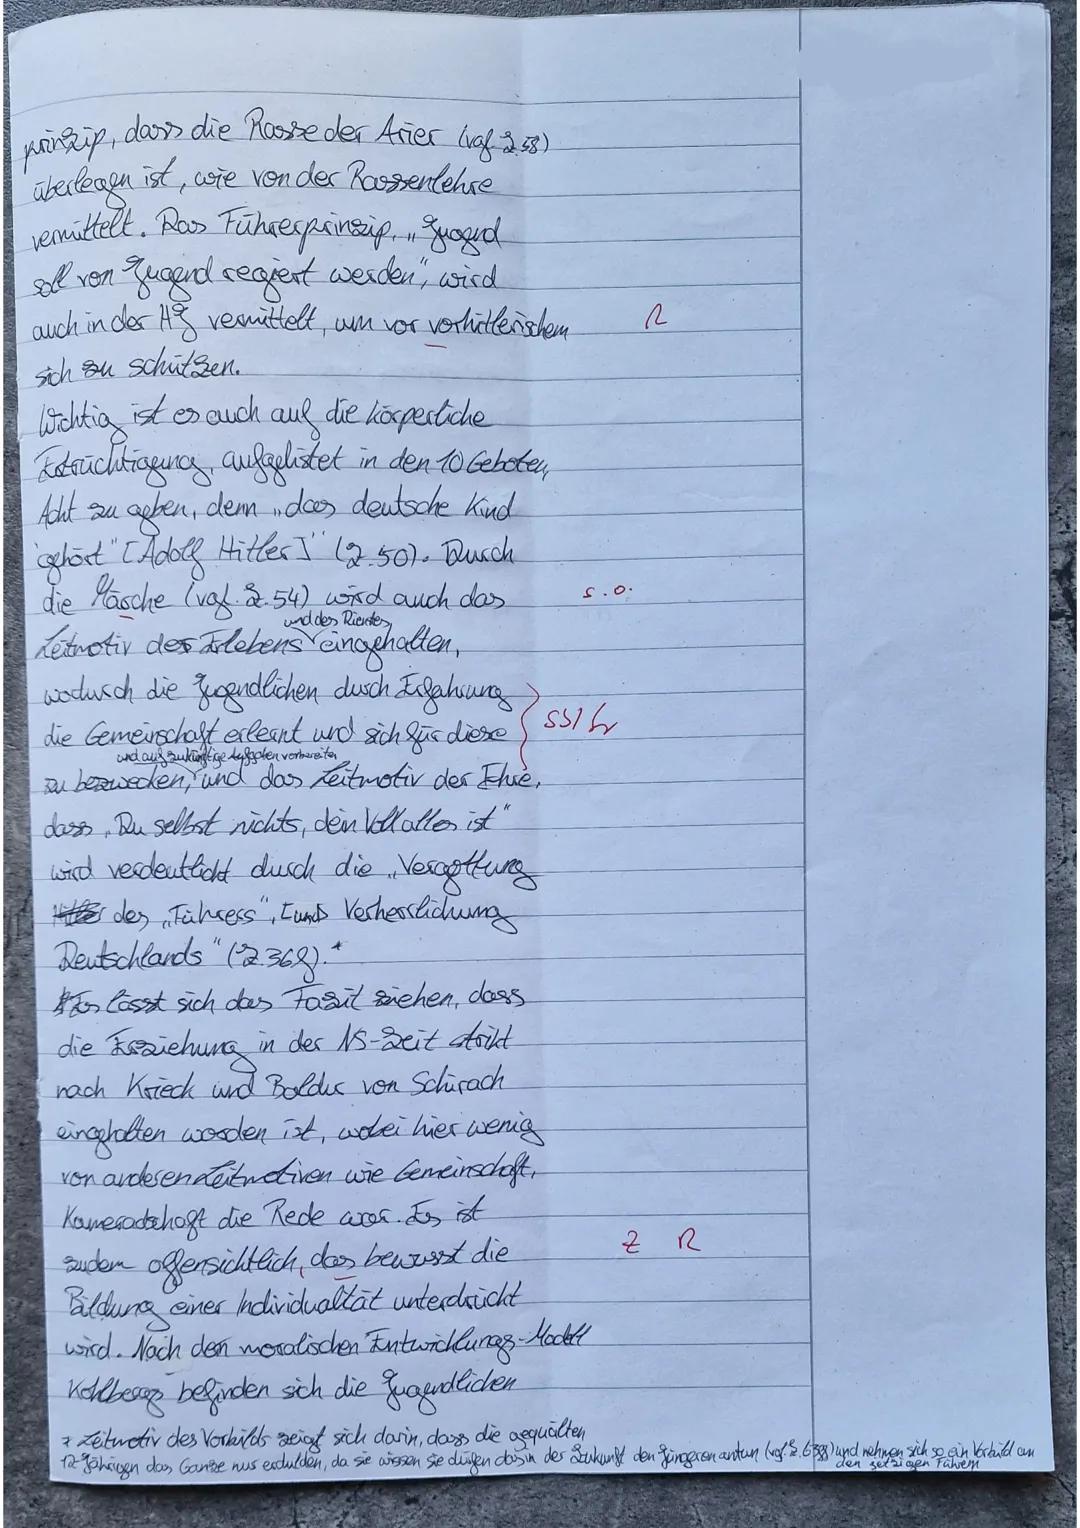 prinzip, dass die Rasse der Arier (vgl. Z.58)
überlegen ist, wie von der Rassenlehre
vermittelt. Das Führerprinzip, „Jugend
soll von Jugend regiert werden", wird
auch in der HJ vermittelt, um vor vorhitlerischem R
sich zu schützen.
Wichtig ist es auch auf die körperliche
Ertüchtigung, aufgelistet in den 10 Geboten,
Acht zu geben, denn „das deutsche Kind
gehört" [Adolf Hitler]" (Z.50). Durch
die Märsche (vgl. Z.54) wird auch das s.o.
und des Dienstes
Leitmotiv des Erlebens eingehalten,
wodurch die Jugendlichen durch Erfahrung
die Gemeinschaft erlernt und sich für diese
und auf zukünftige Aufgaben vorbereiten
zu bezwecken, und das Leitmotiv der Ehre,
dass „Du selbst nichts, dein Volk alles ist"
wird verdeutlicht durch die „Vergottung
des „Führers", [und] Verherrlichung
Deutschlands" (Z.36f).*
Es lässt sich das Fazit ziehen, dass
die Erziehung in der NS-Zeit strikt
nach Krieck und Baldur von Schirach
eingehalten worden ist, wobei hier wenig
von anderen Leitmotiven wie Gemeinschaft,
Kameradschaft die Rede war. Es ist
zudem offensichtlich, das bewusst die Z R
Bildung einer Individualität unterdrückt
wird. Nach dem moralischen Entwicklungs-Modell
Kohlbergs befinden sich die Jugendlichen
* Leitmotiv des Vorbilds zeigt sich darin, dass die gequälten
12-Jährigen das Ganze nur erdulden, da sie wissen sie dürfen das in der Zukunft den Jüngeren antun (vgl. Z. ) und nehmen sich so ein Vorbild an
den jetzigen Führern